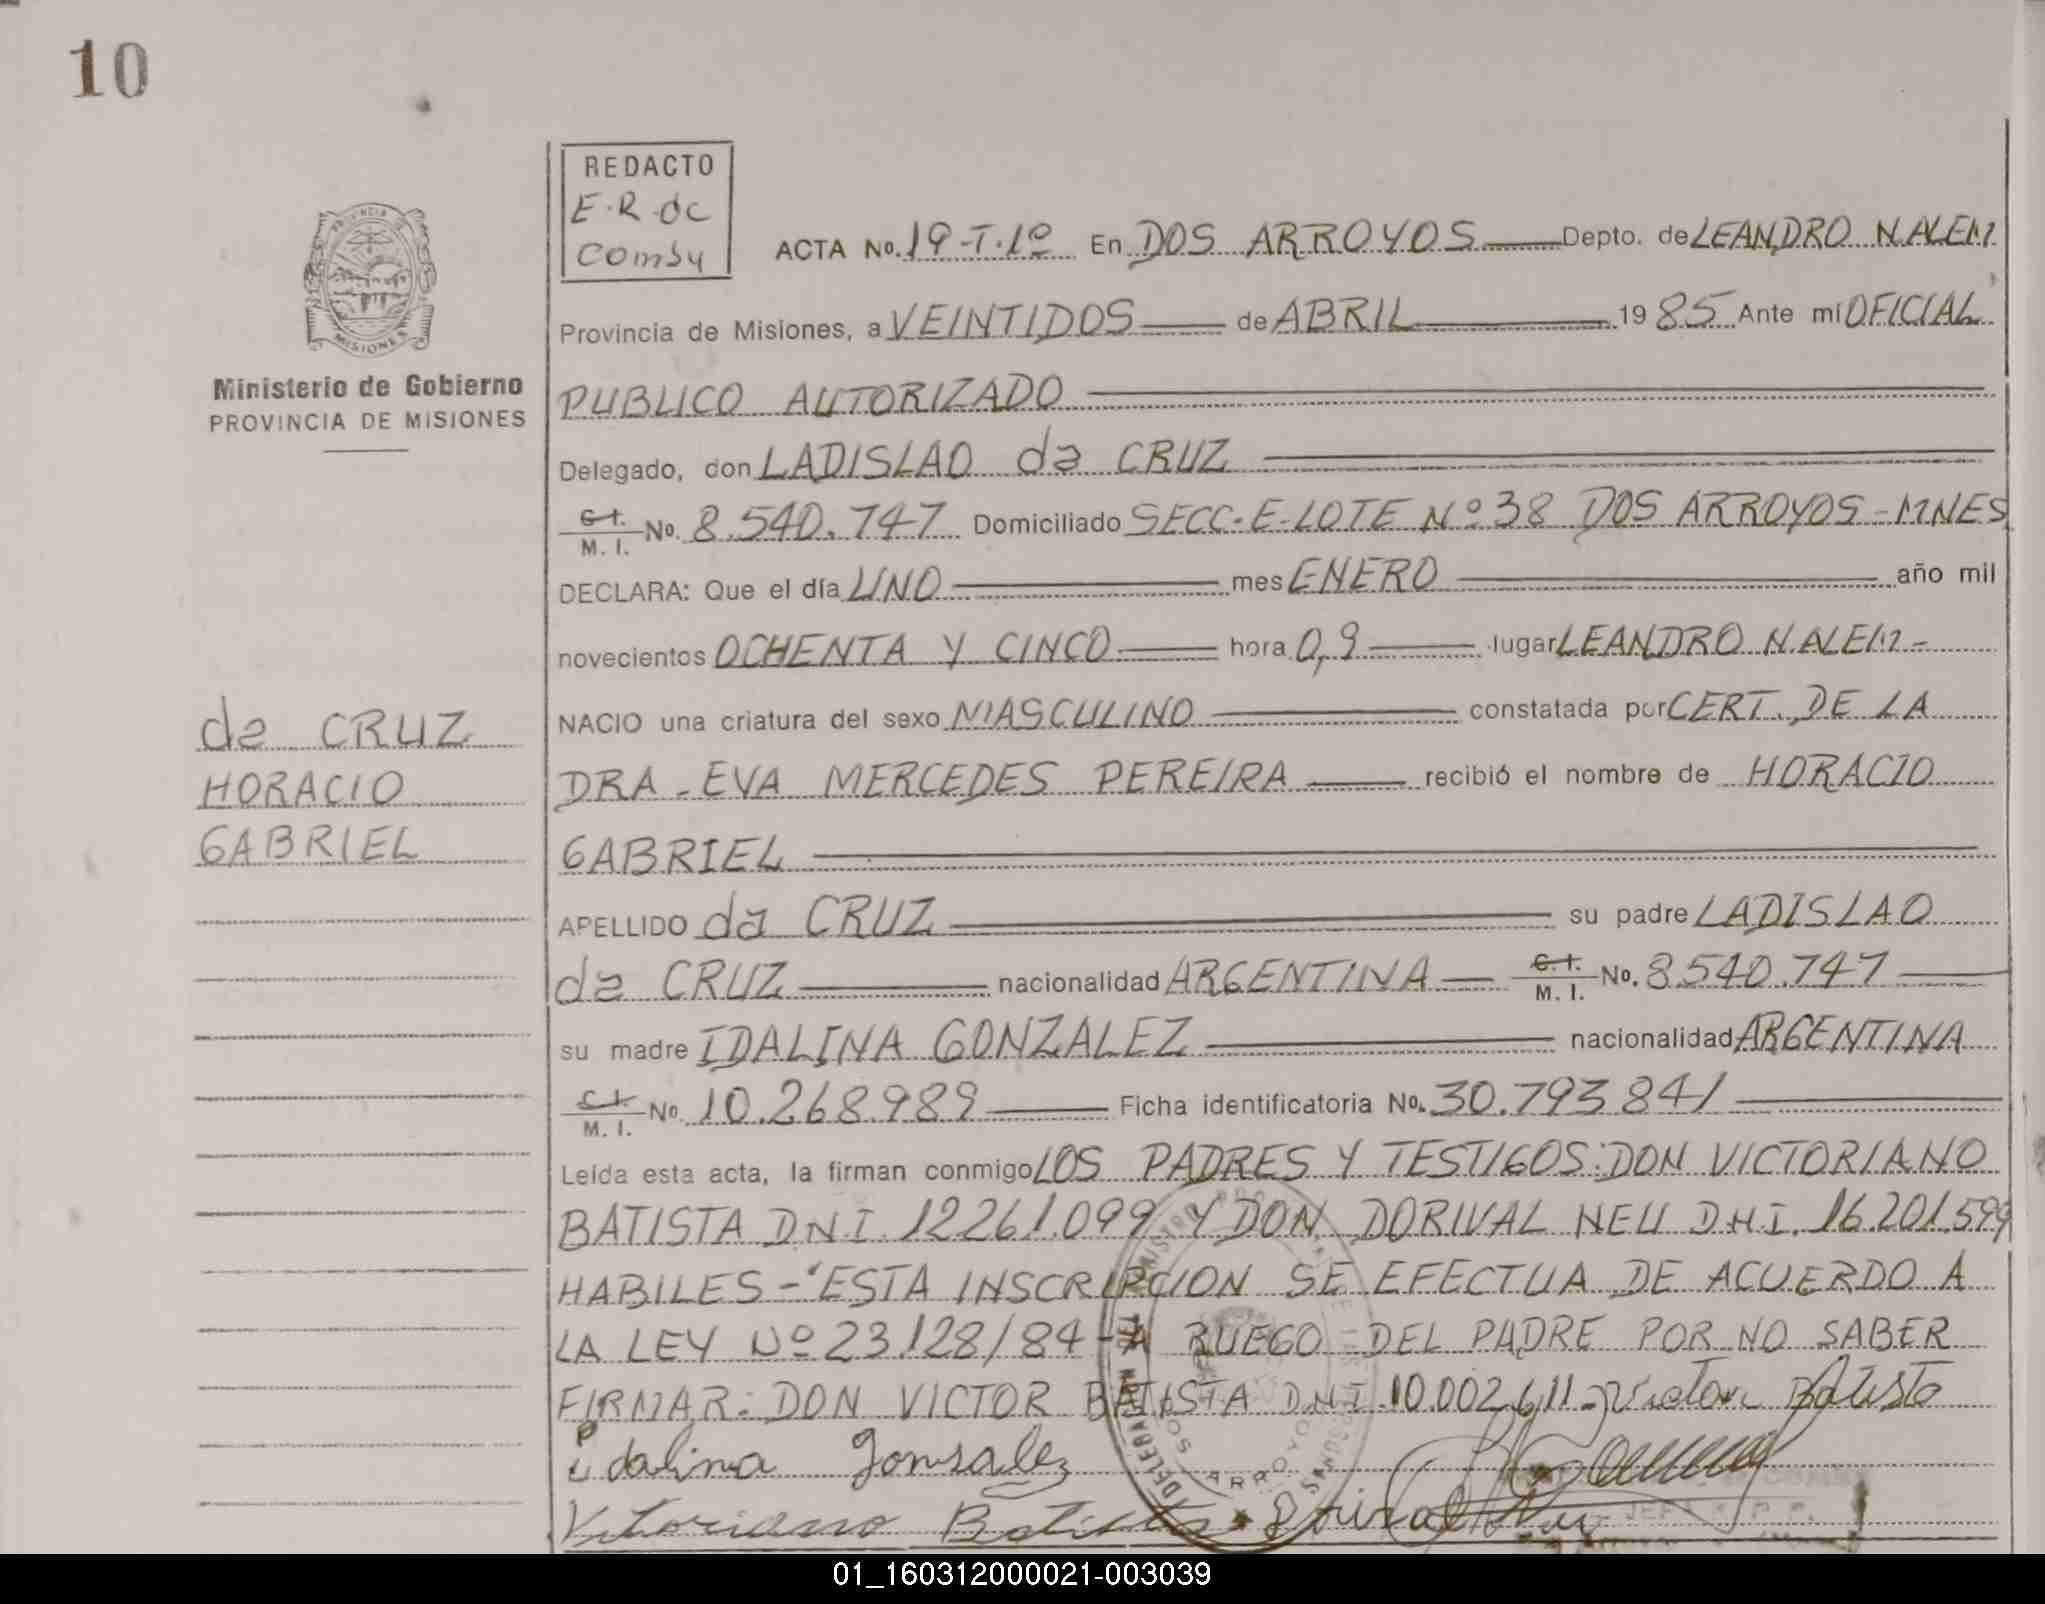 10
REDACTO
E.R.de
Comby
PROVINCIA DE
MISIONES
Ministerio de Gobierno
PROVINCIA DE MISIONES
ACTA No. 19-T.1º En DOS ARROYOS Depto. de LEANDRO N. ALEM
Provincia de Misiones, a VEINTIDOS de ABRIL 1985 Ante mi OFICIAL
PUBLICO AUTORIZADO
Delegado, don LADISLAO da CRUZ
C.I. / M.I. No. 8.540.747 Domiciliado SECC-E-LOTE Nº 38 DOS ARROYOS-MNES
DECLARA: Que el día UNO mes ENERO año mil
novecientos OCHENTA Y CINCO hora 0,9 lugar LEANDRO N. ALEM-
NACIO una criatura del sexo MASCULINO constatada por CERT. DE LA
DRA-EVA MERCEDES PEREIRA recibió el nombre de HORACIO
GABRIEL
APELLIDO da CRUZ su padre LADISLAO
da CRUZ nacionalidad ARGENTINA C.I. / M.I. No. 8.540.747
su madre IDALINA GONZALEZ nacionalidad ARGENTINA
C.I. / M.I. No. 10.268.989 Ficha identificatoria No. 30.793.841
Leída esta acta, la firman conmigo LOS PADRES Y TESTIGOS: DON VICTORIANO
BATISTA D.N.I. 12.261.099 Y DON DORIVAL NEU D.N.I. 16.201.599
HABILES-ESTA INSCRIPCION SE EFECTUA DE ACUERDO A
LA LEY Nº 23.128/84-A RUEGO DEL PADRE POR NO SABER
FIRMAR: DON VICTOR BATISTA D.N.I. 10.002.611-Victor Batista
idalina Gonsalez
Vitoriano Batista Dorival Neu
da CRUZ
HORACIO
GABRIEL
DOS ARROYOS
01_160312000021-003039